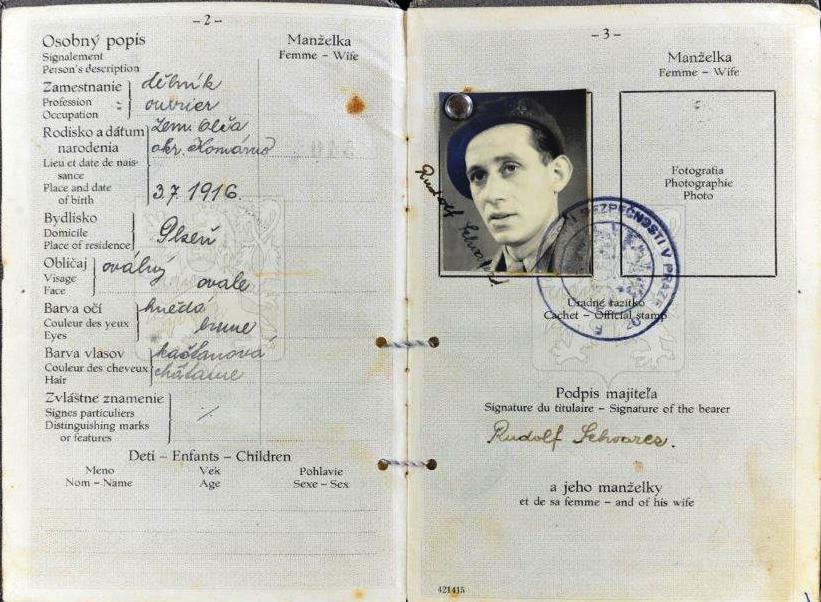 – 2 –
Osobný popis
Signalement
Person's description
Manželka
Femme – Wife
Zamestnanie
Profession
Occupation
dělník
ouvrier
Rodisko a dátum
narodenia
Lieu et date de nais-
sance
Place and date
of birth
Zem. Olča
okr. Komárno
3.7.1916.
Bydlisko
Domicile
Place of residence
Plzeň
Obličaj
Visage
Face
oválný
ovale
Barva očí
Couleur des yeux
Eyes
hnědá
brune
Barva vlasov
Couleur des cheveux
Hair
kaštanová
châtaine
Zvláštne znamenie
Signes particuliers
Distinguishing marks
or features
Deti – Enfants – Children
Meno
Nom – Name
Vek
Age
Pohlavie
Sexe – Sex
– 3 –
Manželka
Femme – Wife
Rudolf Schwarcz
Fotografia
Photographie
Photo
BEZPEČNOSTI V PRAZE
Úradné razítko
Cachet – Official stamp
Podpis majiteľa
Signature du titulaire – Signature of the bearer
Rudolf Schwarcz.
a jeho manželky
et de sa femme – and of his wife
421415